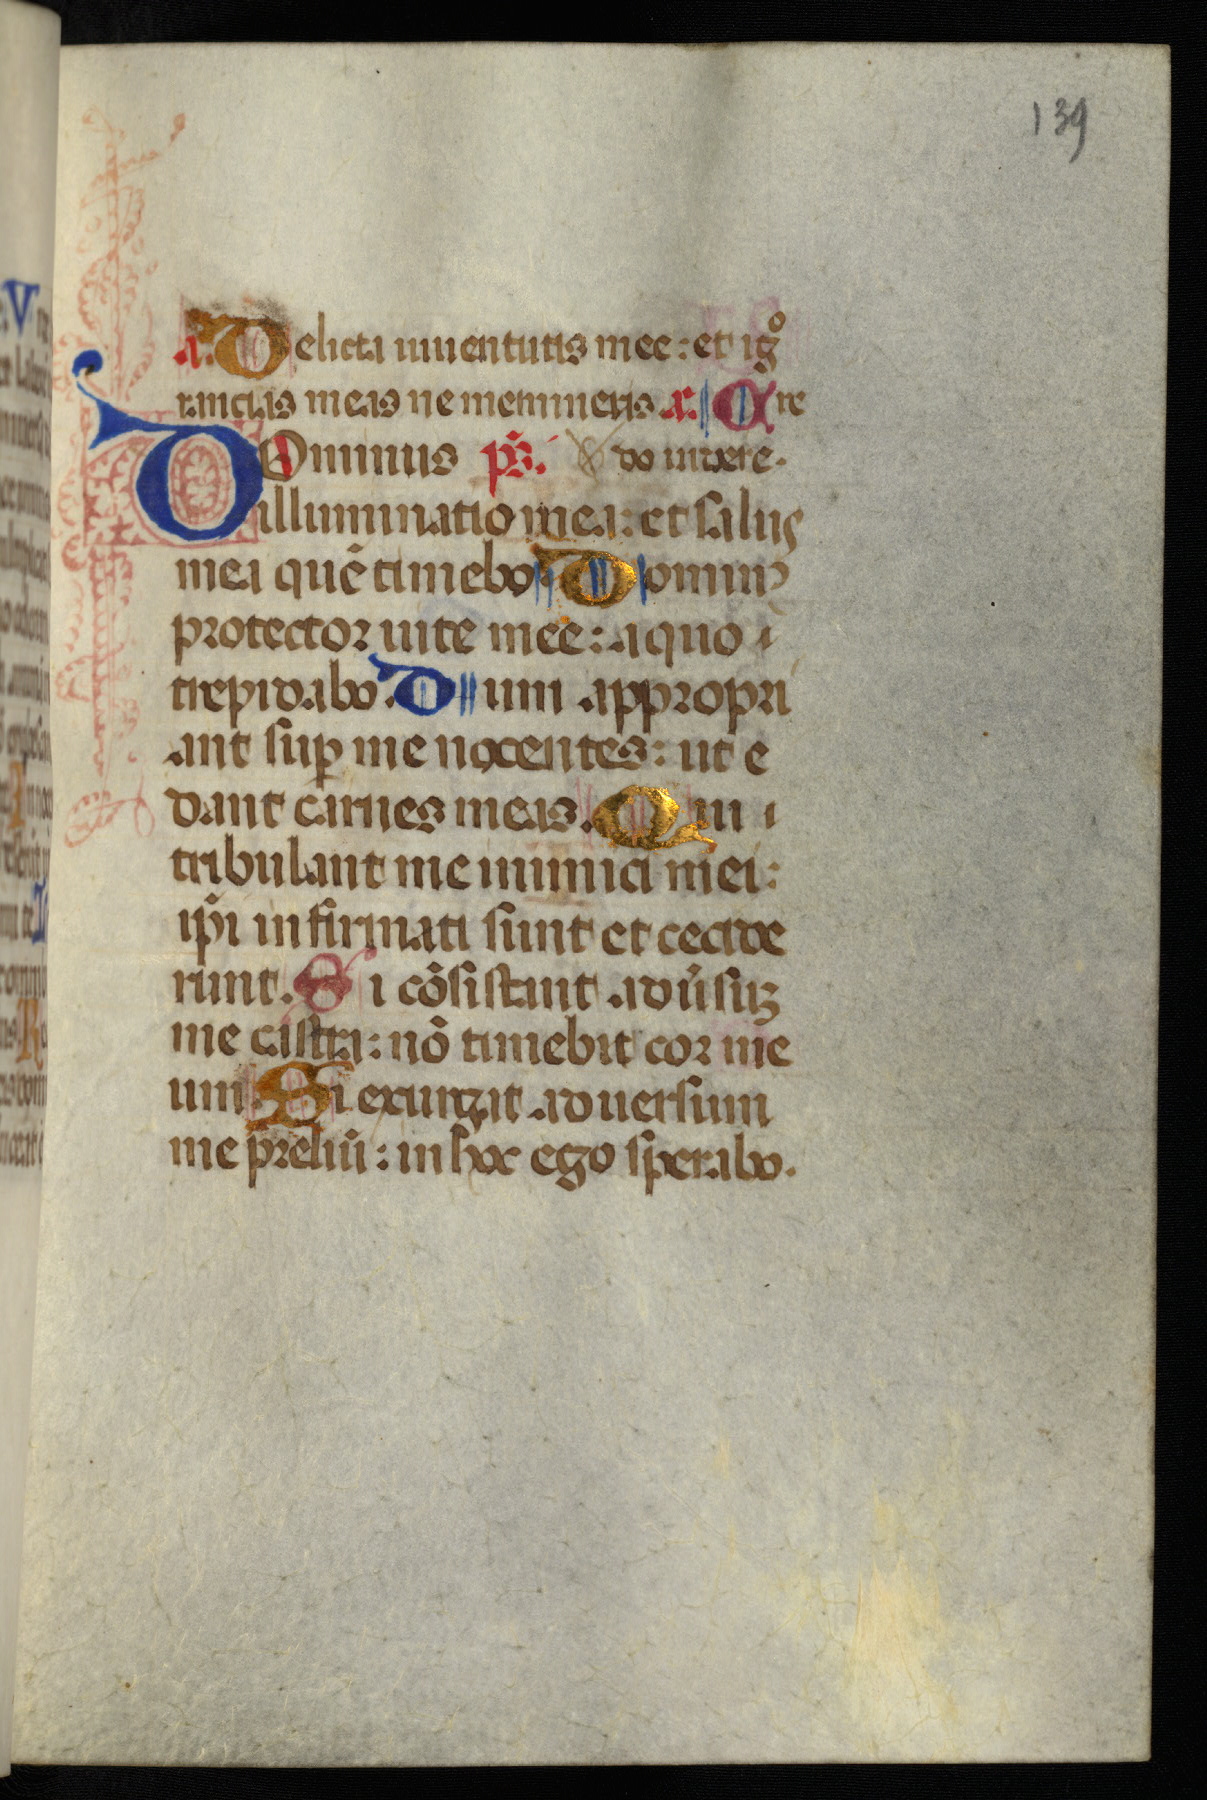 139
a. Delicta iuuentutis mee: et igᵒ
rancias meas ne memineris. a. Cre
Dominus ps̄. do uidere.
illuminatio mea: et salus
mea quē timebo. Dominꝰ
protector uite mee: a quo
trepidabo. Dum appropri
ant sup me nocentes: ut e
dant carnes meas. Qui
tribulant me inimici mei:
ip̄i infirmati sunt et cecide
runt. Si cōsistant adūsuȝ
me castra: nō timebit cor me
um. Si exurgat aduersum
me preliū: in hoc ego sperabo.